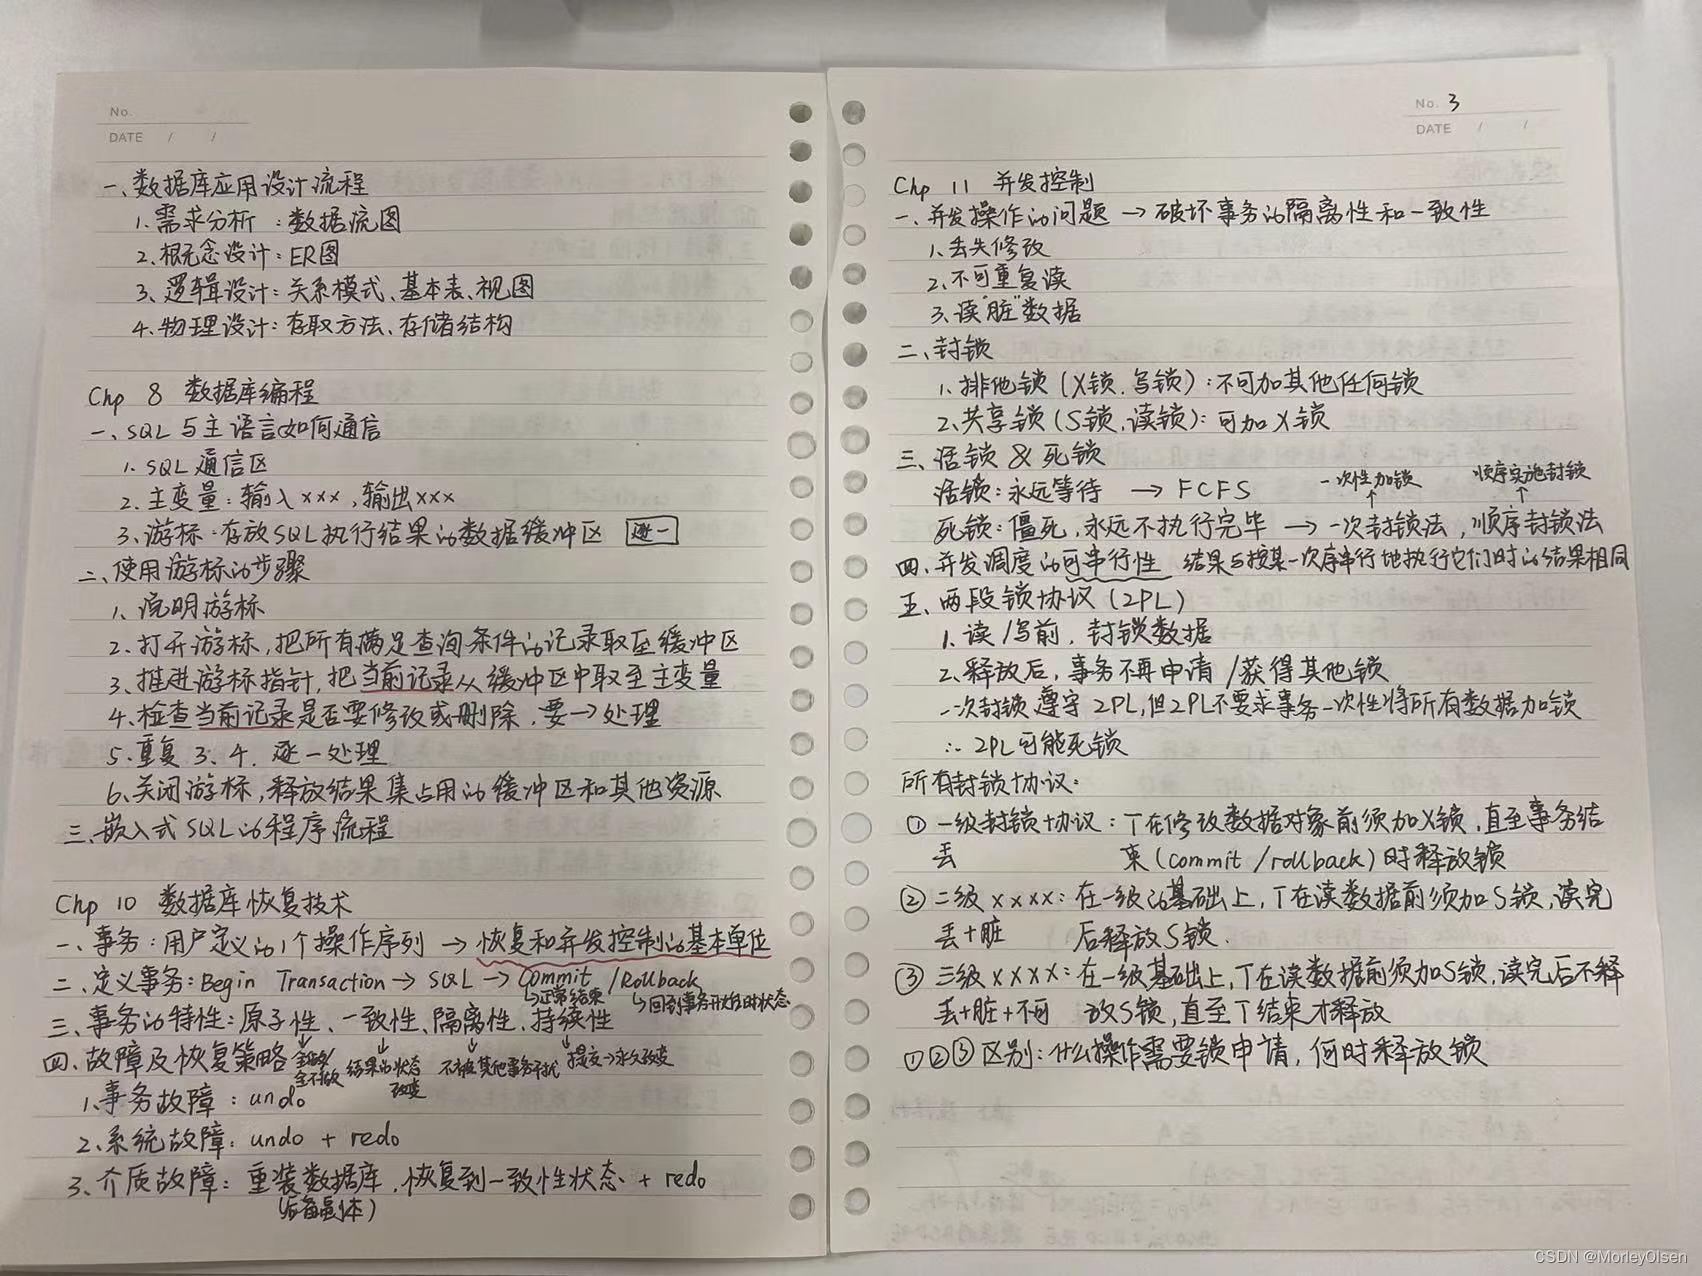 No.
DATE / /
一、数据库应用设计流程
1. 需求分析：数据流图
2. 概念设计：ER图
3、逻辑设计：关系模式、基本表、视图
4. 物理设计：存取方法、存储结构
Chp 8 数据库编程
一、SQL与主语言如何通信
1. SQL通信区
2. 主变量：输入×××，输出×××
3. 游标：存放SQL执行结果的数据缓冲区 逐一
二、使用游标的步骤
1、说明游标
2. 打开游标，把所有满足查询条件的记录取至缓冲区
3、推进游标指针，把当前记录从缓冲区中取至主变量
4. 检查当前记录是否要修改或删除，要→处理
5. 重复3、4. 逐一处理
6. 关闭游标，释放结果集占用的缓冲区和其他资源
三、嵌入式SQL的程序流程
Chp 10 数据库恢复技术
一、事务：用户定义的1个操作序列 → 恢复和并发控制的基本单位
二、定义事务：Begin Transaction → SQL → Commit / Rollback
↳正常结束 ↳回到事务开始时状态
三、事务的特性：原子性、一致性、隔离性、持续性
四、故障及恢复策略
全做/全不做 结果的状态改变 不被其他事务干扰 提交→永久改变
1. 事务故障：undo
2. 系统故障：undo + redo
3、介质故障：重装数据库，恢复到一致性状态 + redo
(后备副本)
No. 3
DATE / /
Chp 11 并发控制
一、并发操作的问题 → 破坏事务的隔离性和一致性
1. 丢失修改
2. 不可重复读
3. 读"脏"数据
二、封锁
1. 排他锁（X锁、写锁）：不可加其他任何锁
2. 共享锁（S锁、读锁）：可加X锁
三、活锁 & 死锁
活锁：永远等待 → FCFS
一次性加锁 顺序实施封锁
↑ ↑
死锁：僵死，永远不执行完毕 → 一次封锁法，顺序封锁法
四、并发调度的可串行性 结果与按某一次序串行地执行它们时的结果相同
五、两段锁协议（2PL）
1. 读/写前，封锁数据
2. 释放后，事务不再申请/获得其他锁
一次封锁遵守2PL，但2PL不要求事务一次性将所有数据加锁
∴ 2PL可能死锁
所有封锁协议：
① 一级封锁协议：T在修改数据对象前须加X锁，直至事务结
丢 束（commit / rollback）时释放锁
② 二级××××：在一级的基础上，T在读数据前须加S锁，读完
丢+脏 后释放S锁.
③ 三级××××：在一级基础上，T在读数据前须加S锁，读完后不释
丢+脏+不可 放S锁，直至T结束才释放
①②③区别：什么操作需要锁申请，何时释放锁
CSDN @MorleyOlsen